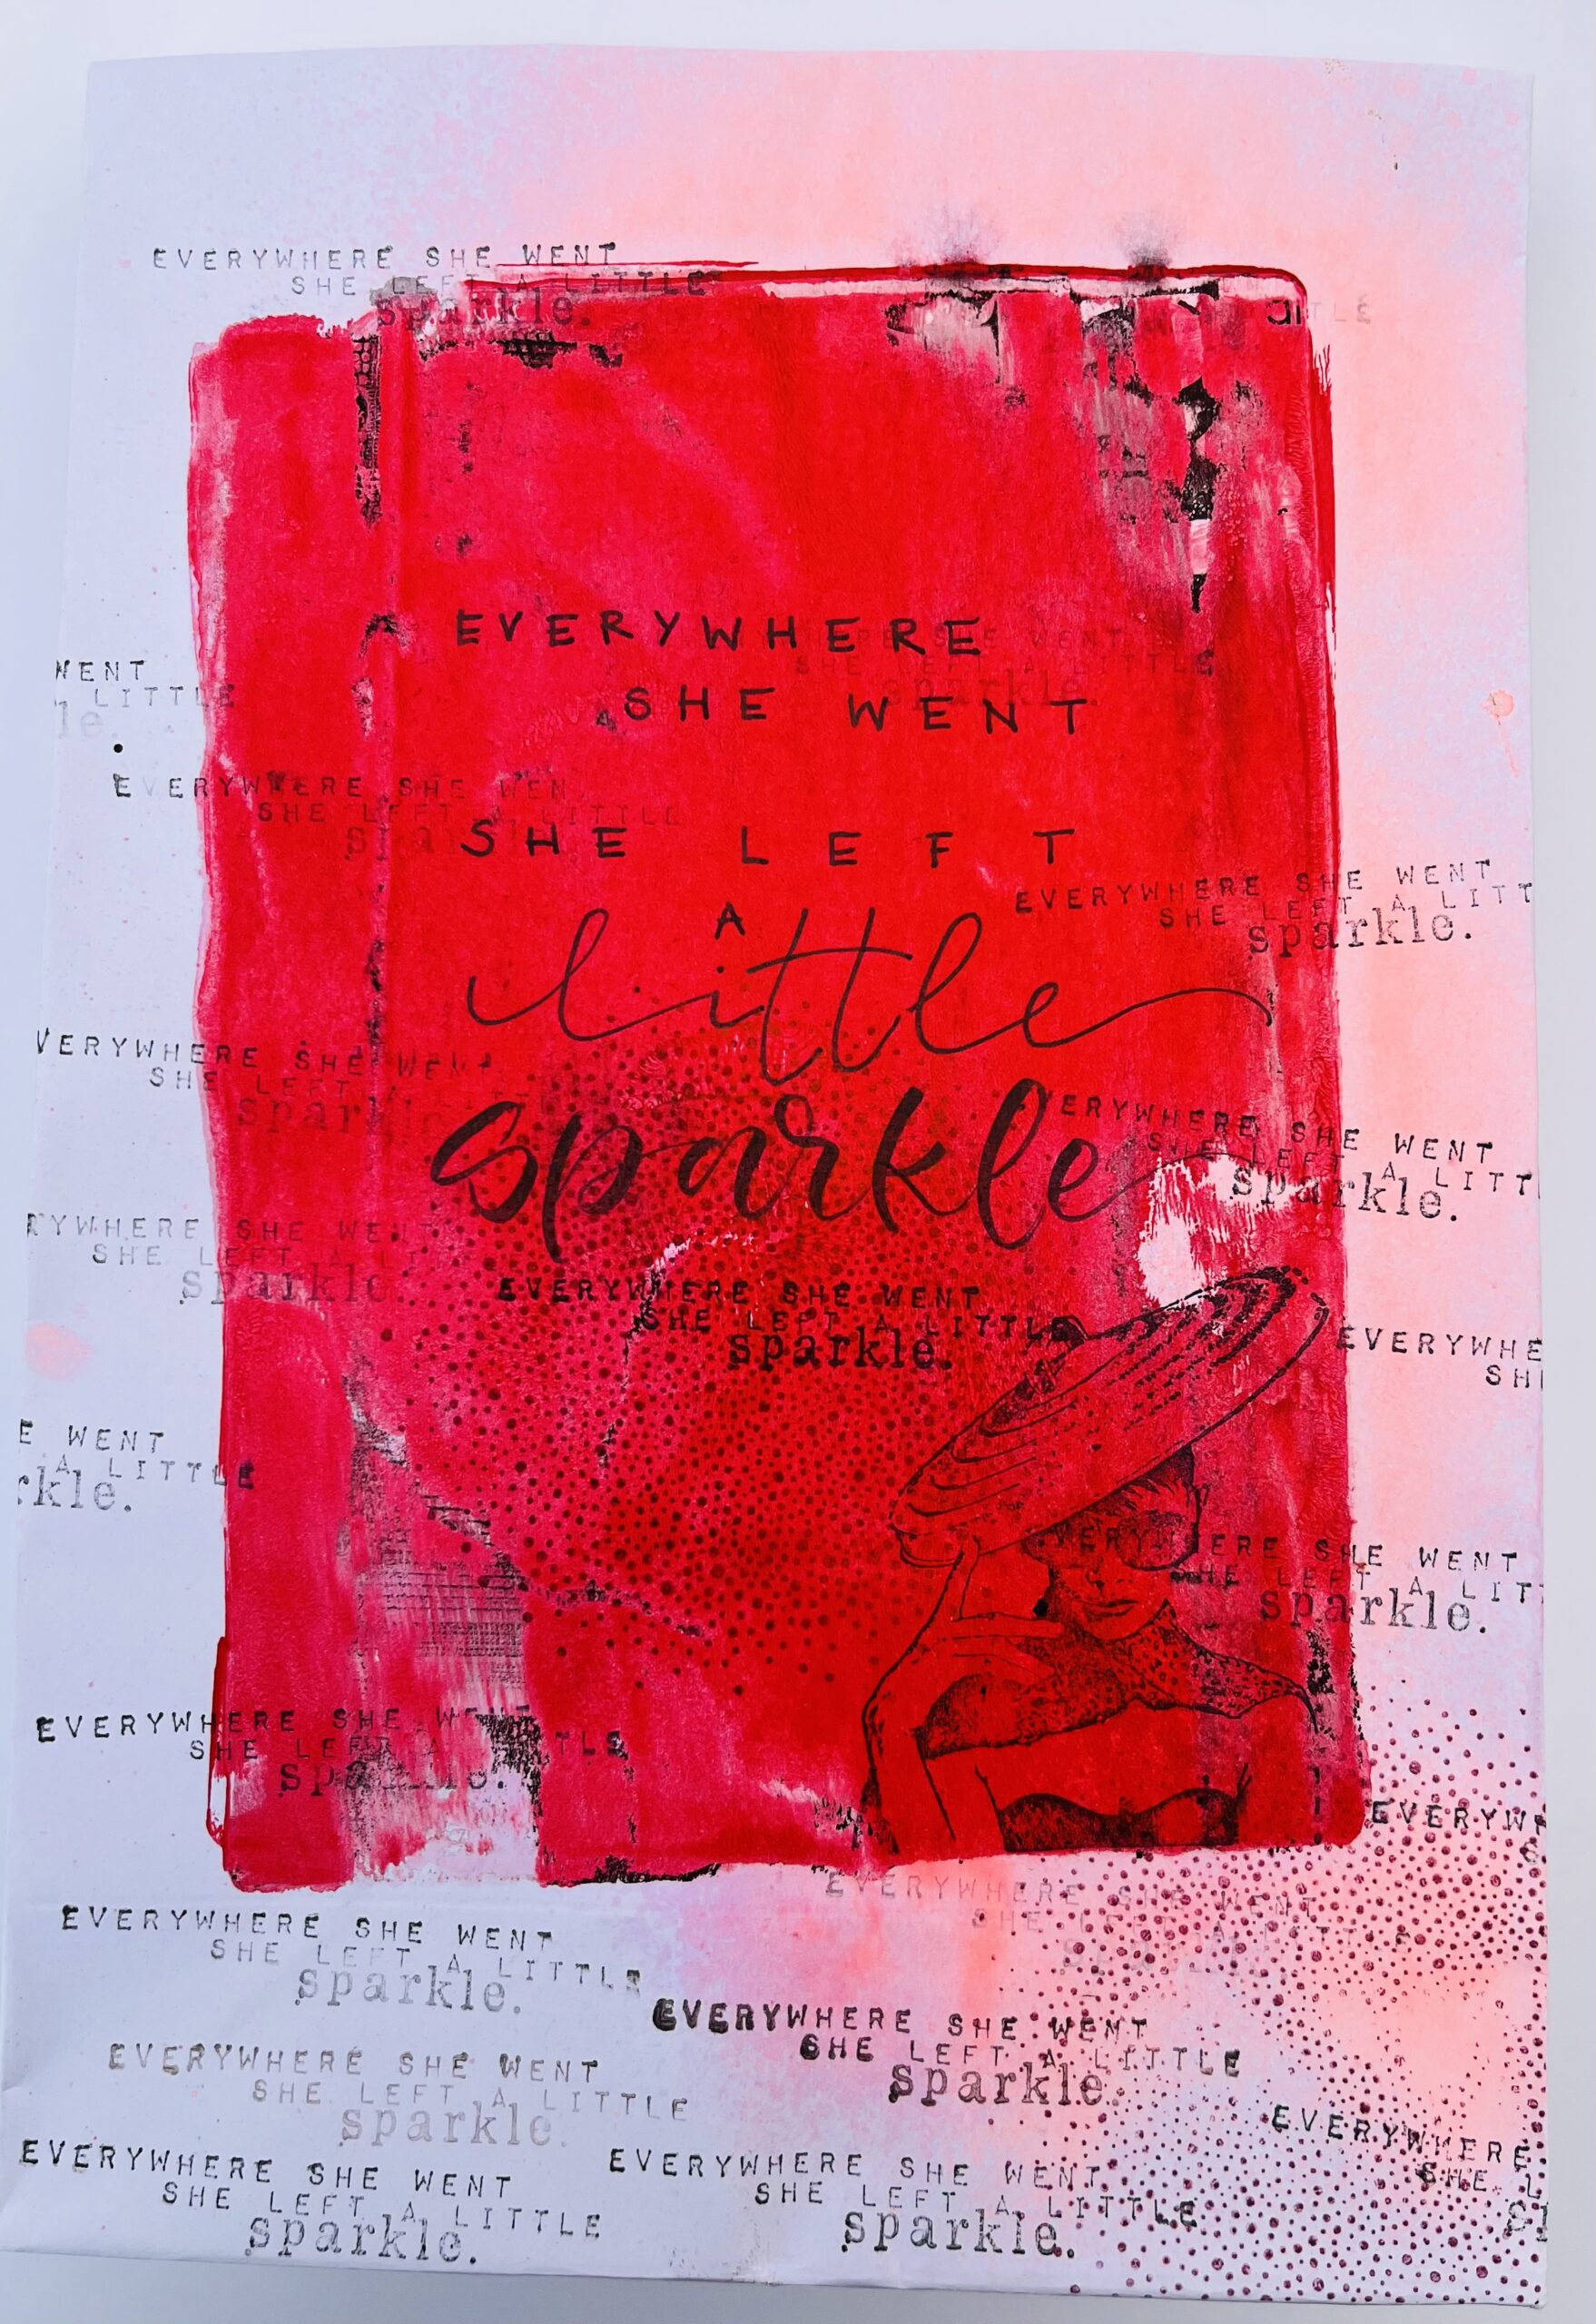 EVERYWHERE SHE WENT
SHE LEFT A LITTLE
sparkle.
EVERYWHERE
SHE WENT
WENT
LITTLE
le.
EVERYWHERE SHE WEN
SHE LEFT A LITTLE
SHE LEFT
A
little
sparkle
EVERYWHERE SHE WENT
SHE LEFT A LITT
sparkle.
VERYWHERE SHE WENT
SHE LEFT A
sparkle
VERYWHERE SHE WENT
SHE LEFT A LITT
sparkle.
RYWHERE SHE WENT
SHE LEFT A LI
sparkle.
EVERYWHERE SHE WENT
SHE LEFT A LITTLE
sparkle.
EVERYWHE
SH
E WENT
A LITTLE
rkle.
VERYWHERE SHE WENT
SHE LEFT A LIT
sparkle.
EVERYWHERE SHE WENT
SHE LEFT A TLE
sparkle.
EVERYW
EVERYWHERE SHE WENT
SHE LEFT A LITTLE
EVERYWHERE SHE WENT
SHE LEFT A LITTLE
sparkle.
EVERYWHERE SHE WENT
SHE LEFT A LITTLE
sparkle.
EVERYWHERE SHE WENT
SHE LEFT A LITTLE
sparkle.
EVERYWHERE
SHE L
EVERYWHERE SHE WENT
SHE LEFT A LITTLE
sparkle.
EVERYWHERE SHE WENT
SHE LEFT A LITTLE
sparkle.